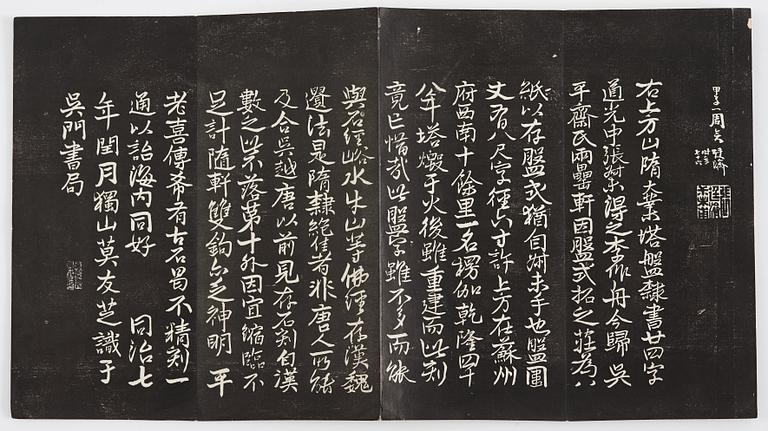 甲子一周矣
右上方山隋大業塔盤隸書廿四字
道光中張叔未得之李 舟今歸吳
平齋氏兩罍軒因盤式拓之莊為八
紙以存盤式猶自叔未手也盤圍
丈有八尺字徑六寸許上方在蘇州
府西南十餘里一名楞伽乾隆四十
八年塔燬于火後雖重建而此刻
竟亡惜哉此盤字雖不多而能
與石經峪水牛山等佛經存漢魏
遺法是隋隸絕佳者非唐人所能
及合吳越唐以前見存石刻自漢
數之此不落第十外因宜縮臨不
足計隨軒雙鉤亦乏神明 平
老喜傳希有古石曷不精刻一
通以詒海內同好 同治七
年閏月獨山莫友芝識于
吳門書局